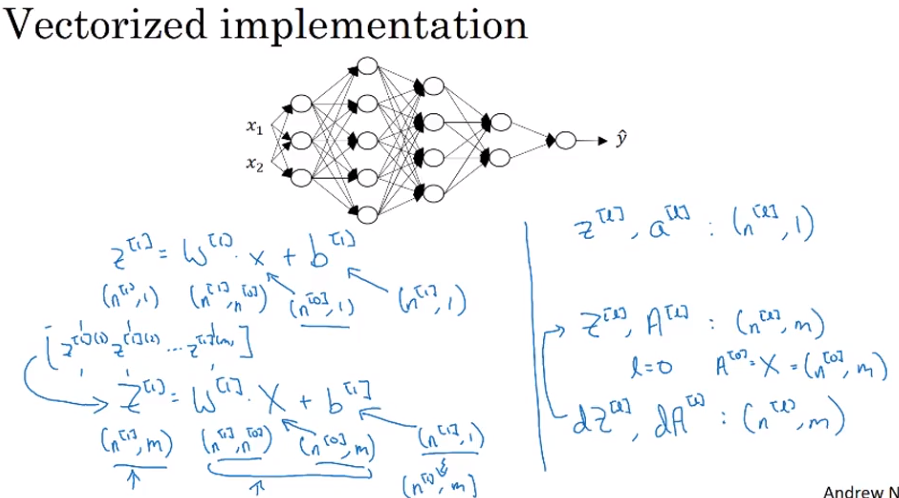 Vectorized implementation
x₁
x₂
ŷ
z^[1] = W^[1] · x + b^[1]
(n^[1], 1) (n^[1], n^[0]) (n^[0], 1) (n^[1], 1)
[z^[1](1) z^[1](2) ... z^[1](m)]
Z^[1] = W^[1] · X + b^[1]
(n^[1], m) (n^[1], n^[0]) (n^[0], m) (n^[1], 1)
(n^[1], m)
z^[l], a^[l] : (n^[l], 1)
Z^[l], A^[l] : (n^[l], m)
l=0 A^[0] = X = (n^[0], m)
dZ^[l], dA^[l] : (n^[l], m)
Andrew N